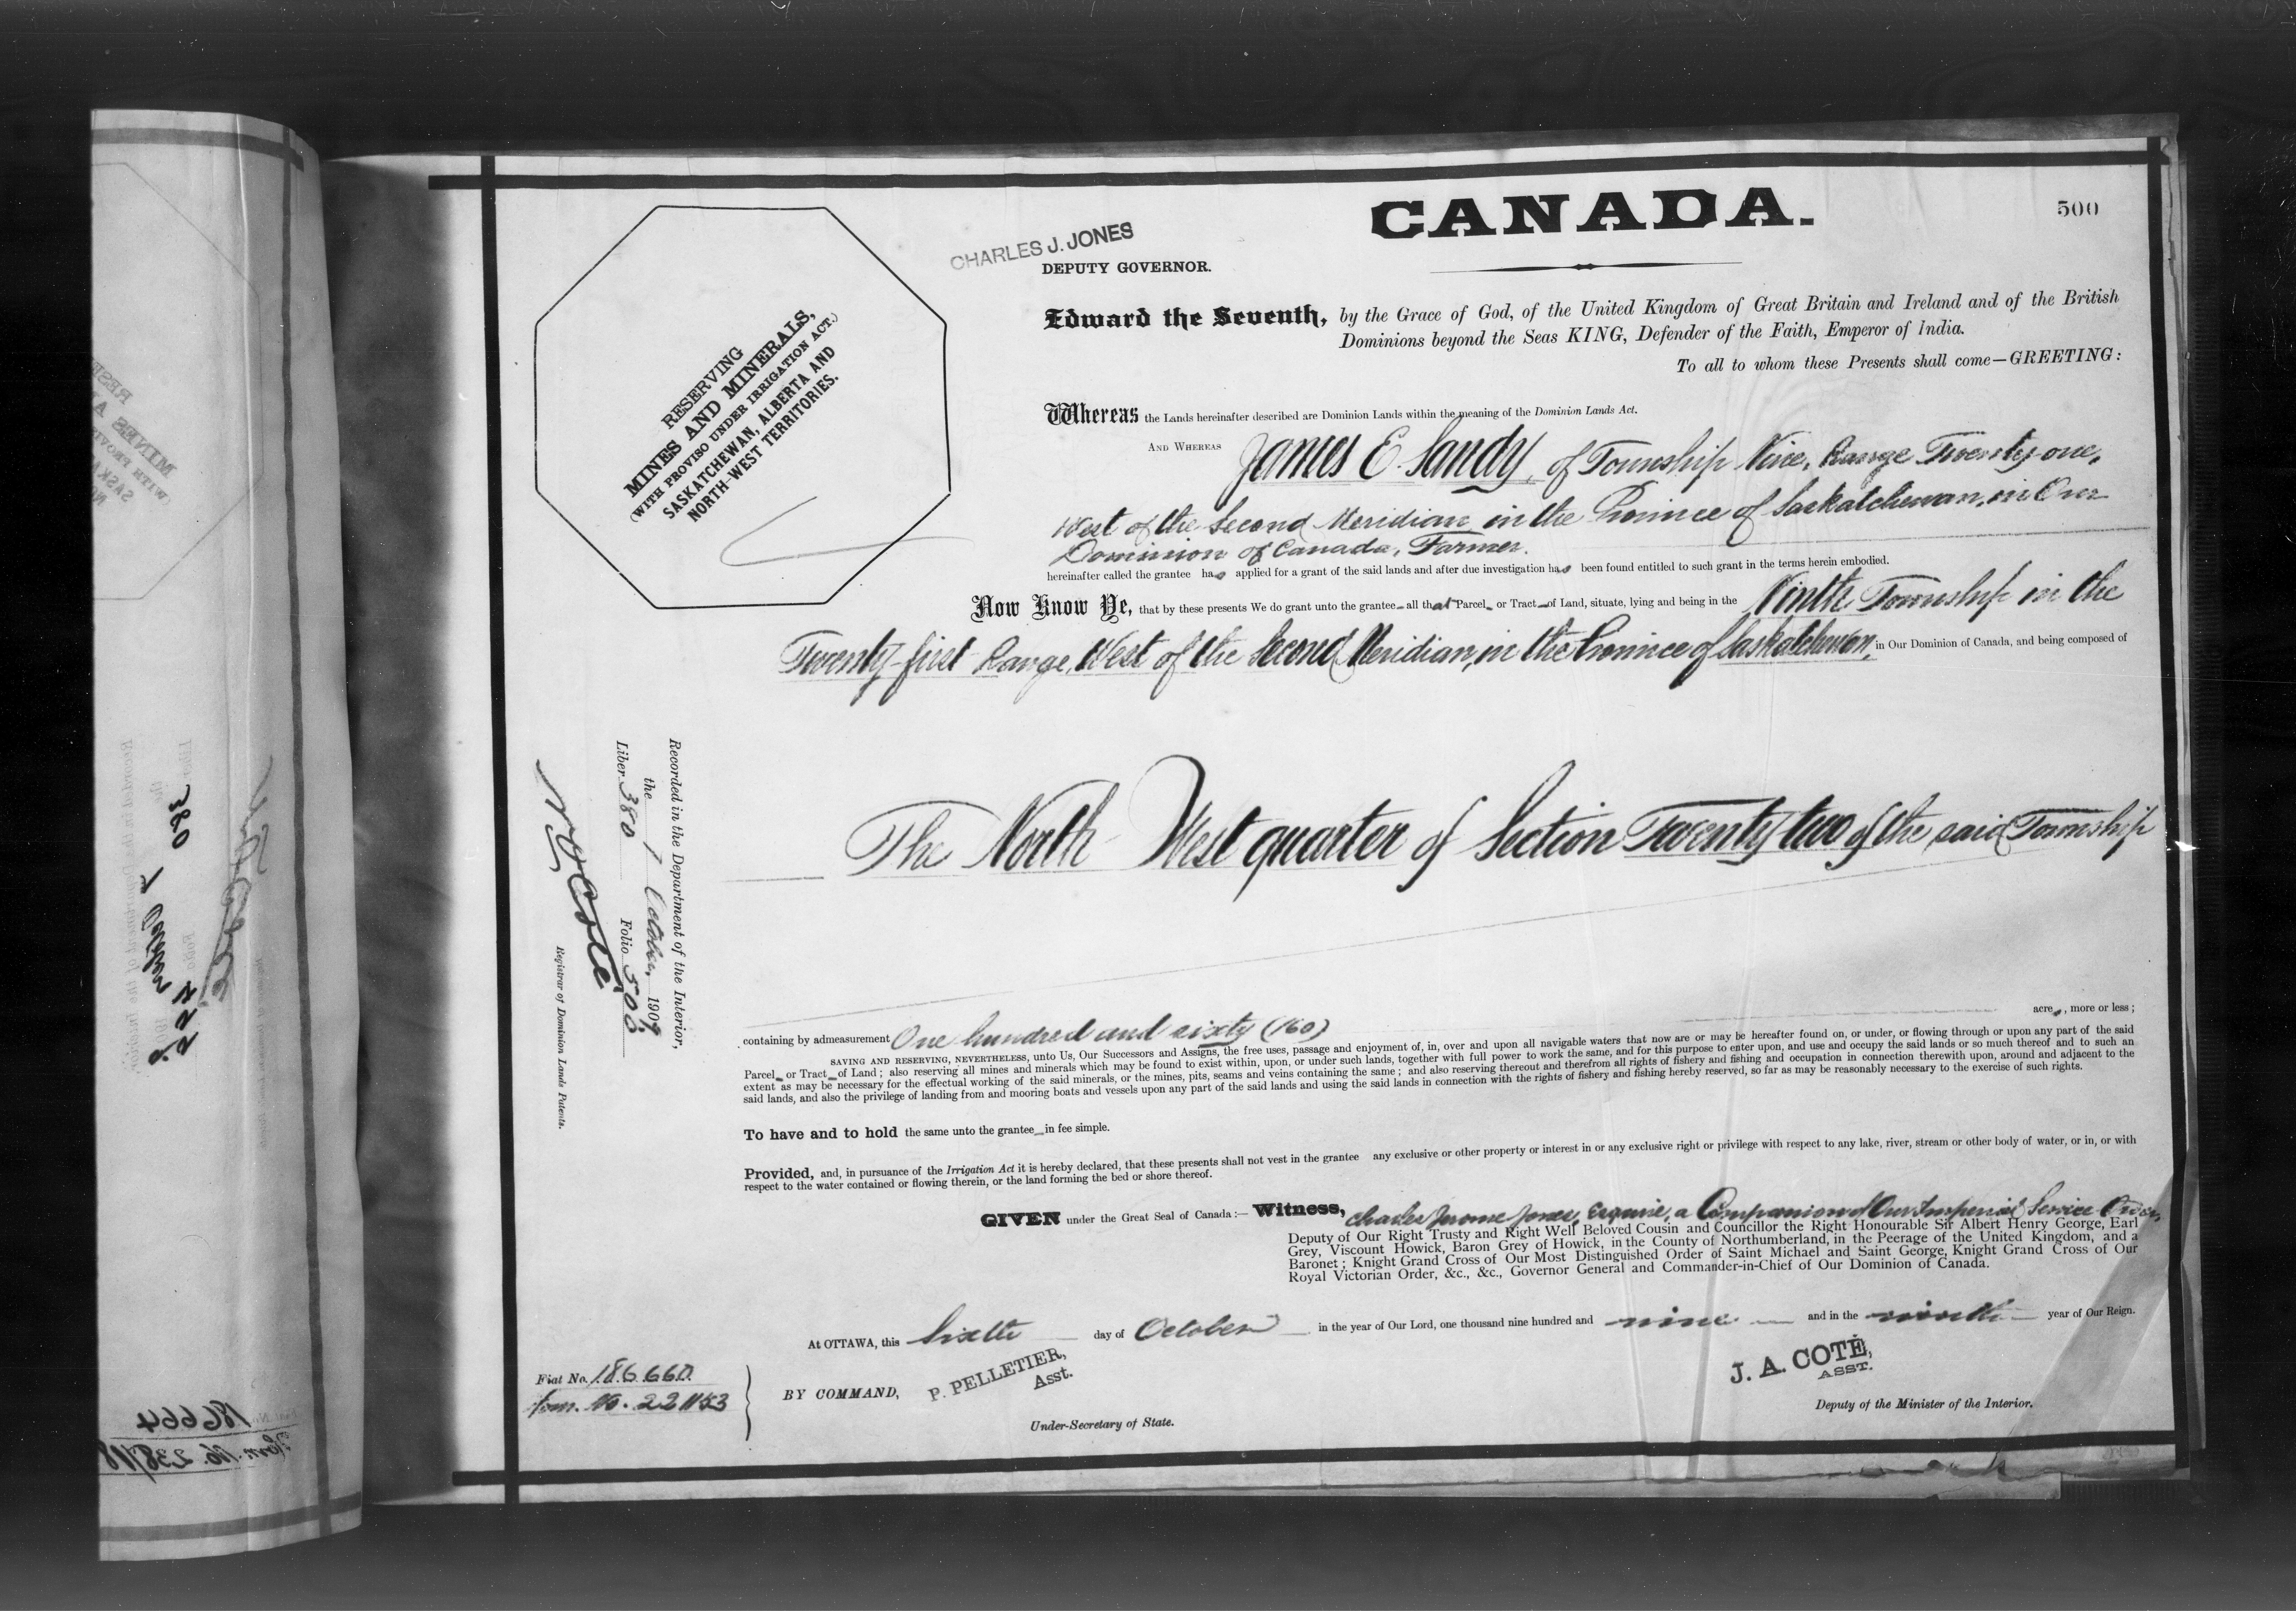 CANADA.
500
CHARLES J. JONES
DEPUTY GOVERNOR.
RESERVING
MINES AND MINERALS,
(WITH PROVISO UNDER IRRIGATION ACT.)
SASKATCHEWAN, ALBERTA AND
NORTH-WEST TERRITORIES.
Edward the Seventh, by the Grace of God, of the United Kingdom of Great Britain and Ireland and of the British
Dominions beyond the Seas KING, Defender of the Faith, Emperor of India.
To all to whom these Presents shall come—GREETING:
Whereas the Lands hereinafter described are Dominion Lands within the meaning of the Dominion Lands Act.
AND WHEREAS James E. Sandy, of Township Nine, Range Twenty-one,
West of the Second Meridian in the Province of Saskatchewan, in Our
Dominion of Canada, Farmer.
hereinafter called the grantee has applied for a grant of the said lands and after due investigation has been found entitled to such grant in the terms herein embodied.
Now Know Ye, that by these presents We do grant unto the grantee all that Parcel or Tract of Land, situate, lying and being in the Ninth Township in the
Twenty-first Range, West of the Second Meridian, in the Province of Saskatchewan, in Our Dominion of Canada, and being composed of
The North West quarter of Section Twenty two of the said Township
Recorded in the Department of the Interior,
the 7 October, 1909.
Liber 380 Folio 500
N. O. Coté
Registrar of Dominion Lands Patents.
containing by admeasurement One hundred and sixty (160) acres, more or less;
SAVING AND RESERVING, NEVERTHELESS, unto Us, Our Successors and Assigns, the free uses, passage and enjoyment of, in, over and upon all navigable waters that now are or may be hereafter found on, or under, or flowing through or upon any part of the said
Parcel or Tract of Land; also reserving all mines and minerals which may be found to exist within, upon, or under such lands, together with full power to work the same, and for this purpose to enter upon, and use and occupy the said lands or so much thereof and to such an
extent as may be necessary for the effectual working of the said minerals, or the mines, pits, seams and veins containing the same; and also reserving thereout and therefrom all rights of fishery and fishing and occupation in connection therewith upon, around and adjacent to the
said lands, and also the privilege of landing from and mooring boats and vessels upon any part of the said lands and using the said lands in connection with the rights of fishery and fishing hereby reserved, so far as may be reasonably necessary to the exercise of such rights.
To have and to hold the same unto the grantee in fee simple.
Provided, and, in pursuance of the Irrigation Act it is hereby declared, that these presents shall not vest in the grantee any exclusive or other property or interest in or any exclusive right or privilege with respect to any lake, river, stream or other body of water, or in, or with
respect to the water contained or flowing therein, or the land forming the bed or shore thereof.
GIVEN under the Great Seal of Canada:—Witness, Charles Jerome Jones, Esquire, a Companion of Our Imperial Service Order,
Deputy of Our Right Trusty and Right Well Beloved Cousin and Councillor the Right Honourable Sir Albert Henry George, Earl
Grey, Viscount Howick, Baron Grey of Howick, in the County of Northumberland, in the Peerage of the United Kingdom, and a
Baronet; Knight Grand Cross of Our Most Distinguished Order of Saint Michael and Saint George, Knight Grand Cross of Our
Royal Victorian Order, &c., &c., Governor General and Commander-in-Chief of Our Dominion of Canada.
At OTTAWA, this Sixth day of October in the year of Our Lord, one thousand nine hundred and nine and in the ninth year of Our Reign.
Fiat No. 186660
BY COMMAND,
P. PELLETIER,
Asst.
Under-Secretary of State.
J. A. COTÉ,
ASST.
Deputy of the Minister of the Interior.